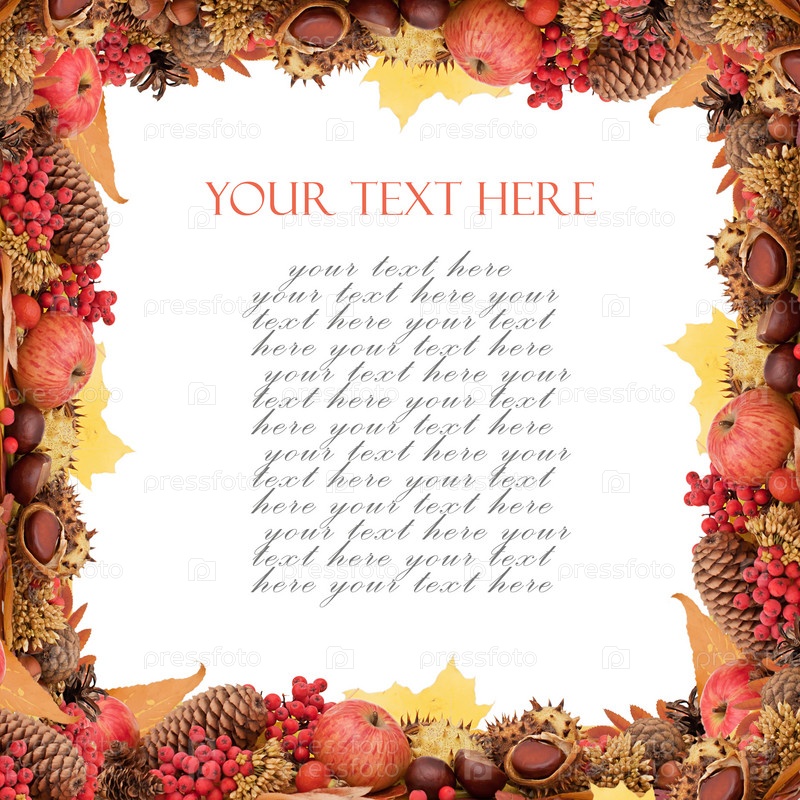 YOUR TEXT HERE
your text here
your text here your
text here your text
here your text here
your text here your
text here your text
here your text here
your text here your
text here your text
here your text here
your text here your
text here your text
here your text here
pressfoto